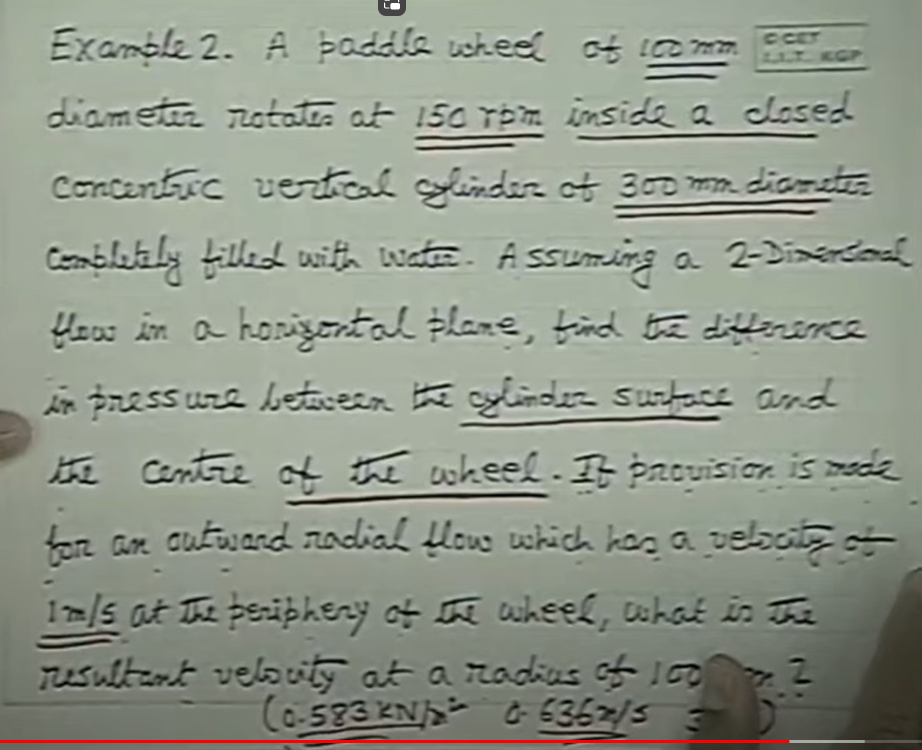 Example 2. A paddle wheel of 100 mm
© CET
I.I.T. KGP
diameter rotates at 150 rpm inside a closed
concentric vertical cylinder of 300 mm diameter
completely filled with water. Assuming a 2-Dimensional
flow in a horizontal plane, find the difference
in pressure between the cylinder surface and
the centre of the wheel. If provision is made
for an outward radial flow which has a velocity of
1 m/s at the periphery of the wheel, what is the
resultant velocity at a radius of 100 ?
(0.583 KN/m² 0.636 m/s )